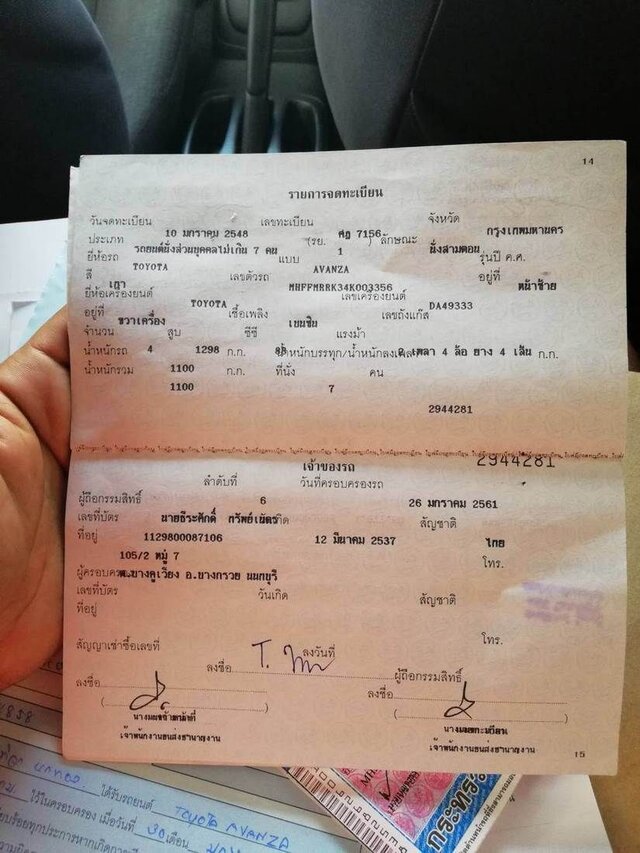 14
รายการจดทะเบียน
วันจดทะเบียน 10 มกราคม 2548 เลขทะเบียน ศฎ 7156 จังหวัด กรุงเทพมหานคร
ประเภท รถยนต์นั่งส่วนบุคคลไม่เกิน 7 คน (รย. 1 ) ลักษณะ นั่งสามตอน
ยี่ห้อรถ TOYOTA แบบ AVANZA รุ่นปี ค.ศ.
สี เทา เลขตัวรถ MHFFMRRK34K003356 อยู่ที่ หน้าซ้าย
ยี่ห้อเครื่องยนต์ TOYOTA เลขเครื่องยนต์ DA49333
อยู่ที่ ขวาเครื่อง เชื้อเพลิง เบนซิน เลขถังแก๊ส
จำนวน 4 สูบ 1298 ซีซี แรงม้า 2 เพลา 4 ล้อ ยาง 4 เส้น
น้ำหนักรถ 1100 ก.ก. น้ำหนักบรรทุก/น้ำหนักลงเพลา ก.ก.
น้ำหนักรวม 1100 ก.ก. ที่นั่ง 7 คน
2944281
2944281
เจ้าของรถ
ลำดับที่ 6 วันที่ครอบครองรถ 26 มกราคม 2561
ผู้ถือกรรมสิทธิ์ นายธีระศักดิ์
เลขที่บัตร 1129800087106 วันเกิด 12 มีนาคม 2537 สัญชาติ ไทย
ที่อยู่ 105/2 หมู่ 7 โทร.
ต.บางคูเวียง อ.บางกรวย นนทบุรี
ผู้ครอบครอง
เลขที่บัตร วันเกิด สัญชาติ
ที่อยู่
โทร.
สัญญาเช่าซื้อเลขที่ ลงวันที่
ลงชื่อ ผู้ถือกรรมสิทธิ์
ลงชื่อ ลงชื่อ
เจ้าพนักงานขนส่งชำนาญงาน เจ้าพนักงานขนส่งชำนาญงาน
15
ได้รับรถยนต์ TOYOTA AVANZA
ไว้ในครอบครอง เมื่อวันที่ 30 เดือน
กระทรว